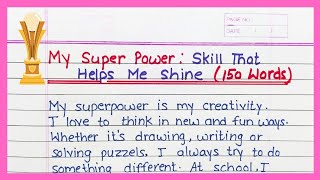 PAGE NO.:
DATE: / /
My Super Power: Skill That
Helps Me Shine (150 Words)
My superpower is my creativity.
I love to think in new and fun ways.
Whether it's drawing, writing or
solving puzzels. I always try to do
something different. At school, I